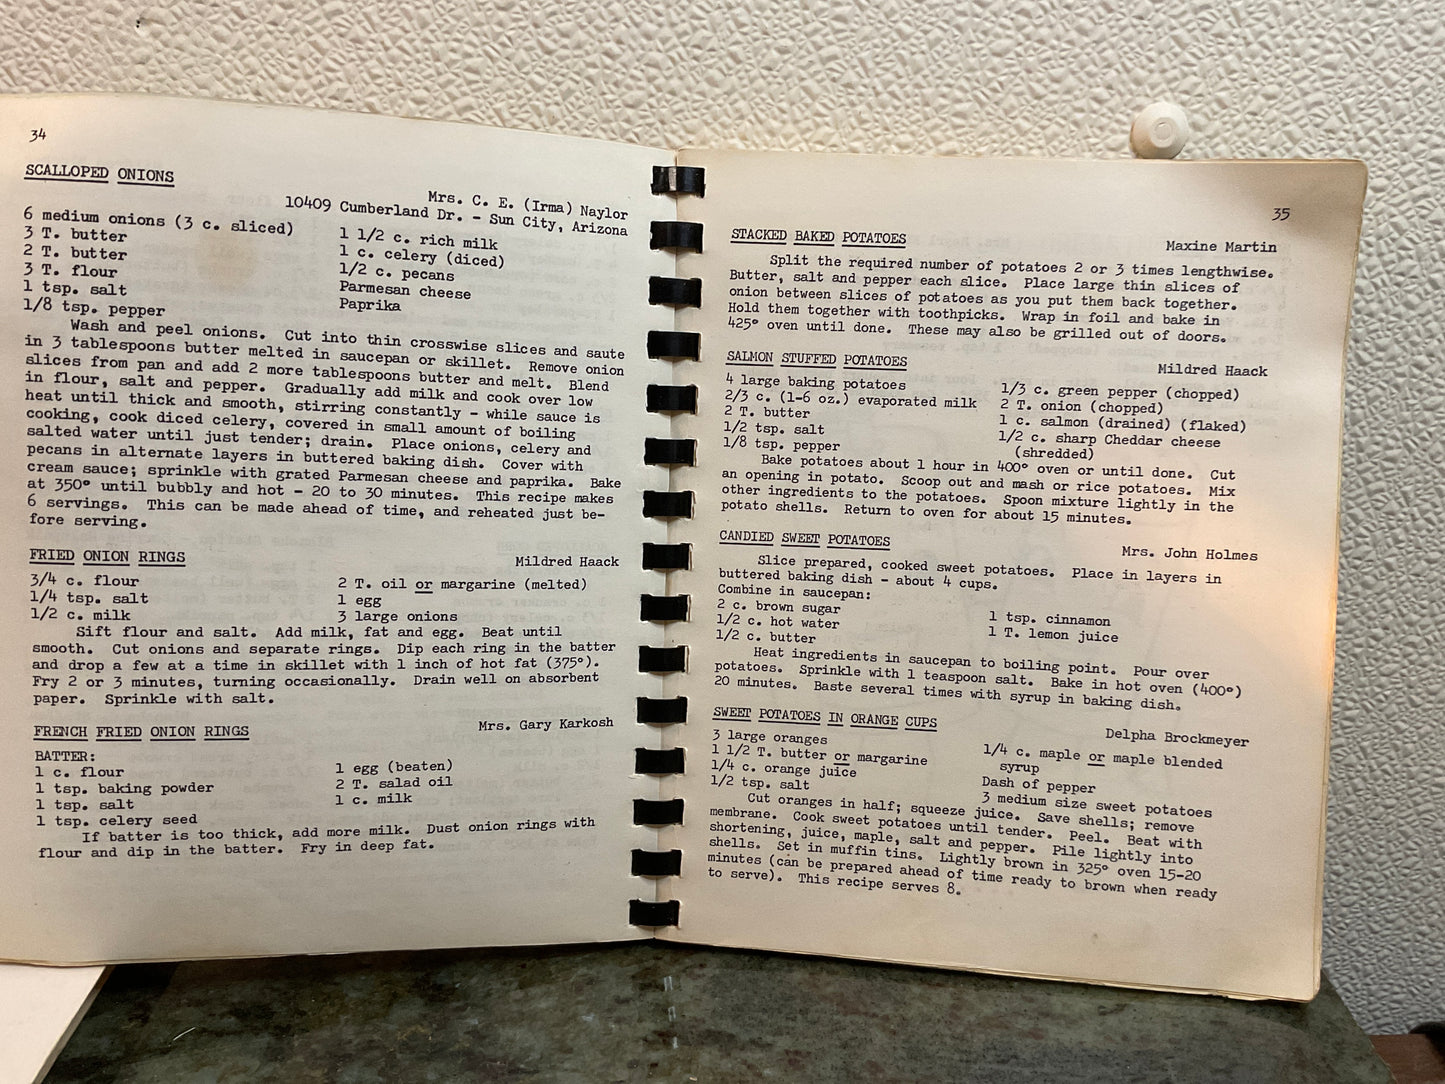 34
SCALLOPED ONIONS
Mrs. C. E. (Irma) Naylor
10409 Cumberland Dr. - Sun City, Arizona
6 medium onions (3 c. sliced)
3 T. butter
2 T. butter
3 T. flour
1 tsp. salt
1/8 tsp. pepper
1 1/2 c. rich milk
1 c. celery (diced)
1/2 c. pecans
Parmesan cheese
Paprika
Wash and peel onions. Cut into thin crosswise slices and saute
in 3 tablespoons butter melted in saucepan or skillet. Remove onion
slices from pan and add 2 more tablespoons butter and melt. Blend
in flour, salt and pepper. Gradually add milk and cook over low
heat until thick and smooth, stirring constantly - while sauce is
cooking, cook diced celery, covered in small amount of boiling
salted water until just tender; drain. Place onions, celery and
pecans in alternate layers in buttered baking dish. Cover with
cream sauce; sprinkle with grated Parmesan cheese and paprika. Bake
at 350° until bubbly and hot - 20 to 30 minutes. This recipe makes
6 servings. This can be made ahead of time, and reheated just be-
fore serving.
FRIED ONION RINGS
Mildred Haack
3/4 c. flour
1/4 tsp. salt
1/2 c. milk
2 T. oil or margarine (melted)
1 egg
3 large onions
Sift flour and salt. Add milk, fat and egg. Beat until
smooth. Cut onions and separate rings. Dip each ring in the batter
and drop a few at a time in skillet with 1 inch of hot fat (375°).
Fry 2 or 3 minutes, turning occasionally. Drain well on absorbent
paper. Sprinkle with salt.
FRENCH FRIED ONION RINGS
Mrs. Gary Karkosh
BATTER:
1 c. flour
1 tsp. baking powder
1 tsp. salt
1 tsp. celery seed
1 egg (beaten)
2 T. salad oil
1 c. milk
If batter is too thick, add more milk. Dust onion rings with
flour and dip in the batter. Fry in deep fat.
35
STACKED BAKED POTATOES
Maxine Martin
Split the required number of potatoes 2 or 3 times lengthwise.
Butter, salt and pepper each slice. Place large thin slices of
onion between slices of potatoes as you put them back together.
Hold them together with toothpicks. Wrap in foil and bake in
425° oven until done. These may also be grilled out of doors.
SALMON STUFFED POTATOES
Mildred Haack
4 large baking potatoes
2/3 c. (1-6 oz.) evaporated milk
2 T. butter
1/2 tsp. salt
1/8 tsp. pepper
1/3 c. green pepper (chopped)
2 T. onion (chopped)
1 c. salmon (drained) (flaked)
1/2 c. sharp Cheddar cheese
(shredded)
Bake potatoes about 1 hour in 400° oven or until done. Cut
an opening in potato. Scoop out and mash or rice potatoes. Mix
other ingredients to the potatoes. Spoon mixture lightly in the
potato shells. Return to oven for about 15 minutes.
CANDIED SWEET POTATOES
Mrs. John Holmes
Slice prepared, cooked sweet potatoes. Place in layers in
buttered baking dish - about 4 cups.
Combine in saucepan:
2 c. brown sugar
1/2 c. hot water
1/2 c. butter
1 tsp. cinnamon
1 T. lemon juice
Heat ingredients in saucepan to boiling point. Pour over
potatoes. Sprinkle with 1 teaspoon salt. Bake in hot oven (400°)
20 minutes. Baste several times with syrup in baking dish.
SWEET POTATOES IN ORANGE CUPS
Delpha Brockmeyer
3 large oranges
1 1/2 T. butter or margarine
1/4 c. orange juice
1/2 tsp. salt
1/4 c. maple or maple blended
syrup
Dash of pepper
3 medium size sweet potatoes
Cut oranges in half; squeeze juice. Save shells; remove
membrane. Cook sweet potatoes until tender. Peel. Beat with
shortening, juice, maple, salt and pepper. Pile lightly into
shells. Set in muffin tins. Lightly brown in 325° oven 15-20
minutes (can be prepared ahead of time ready to brown when ready
to serve). This recipe serves 8.